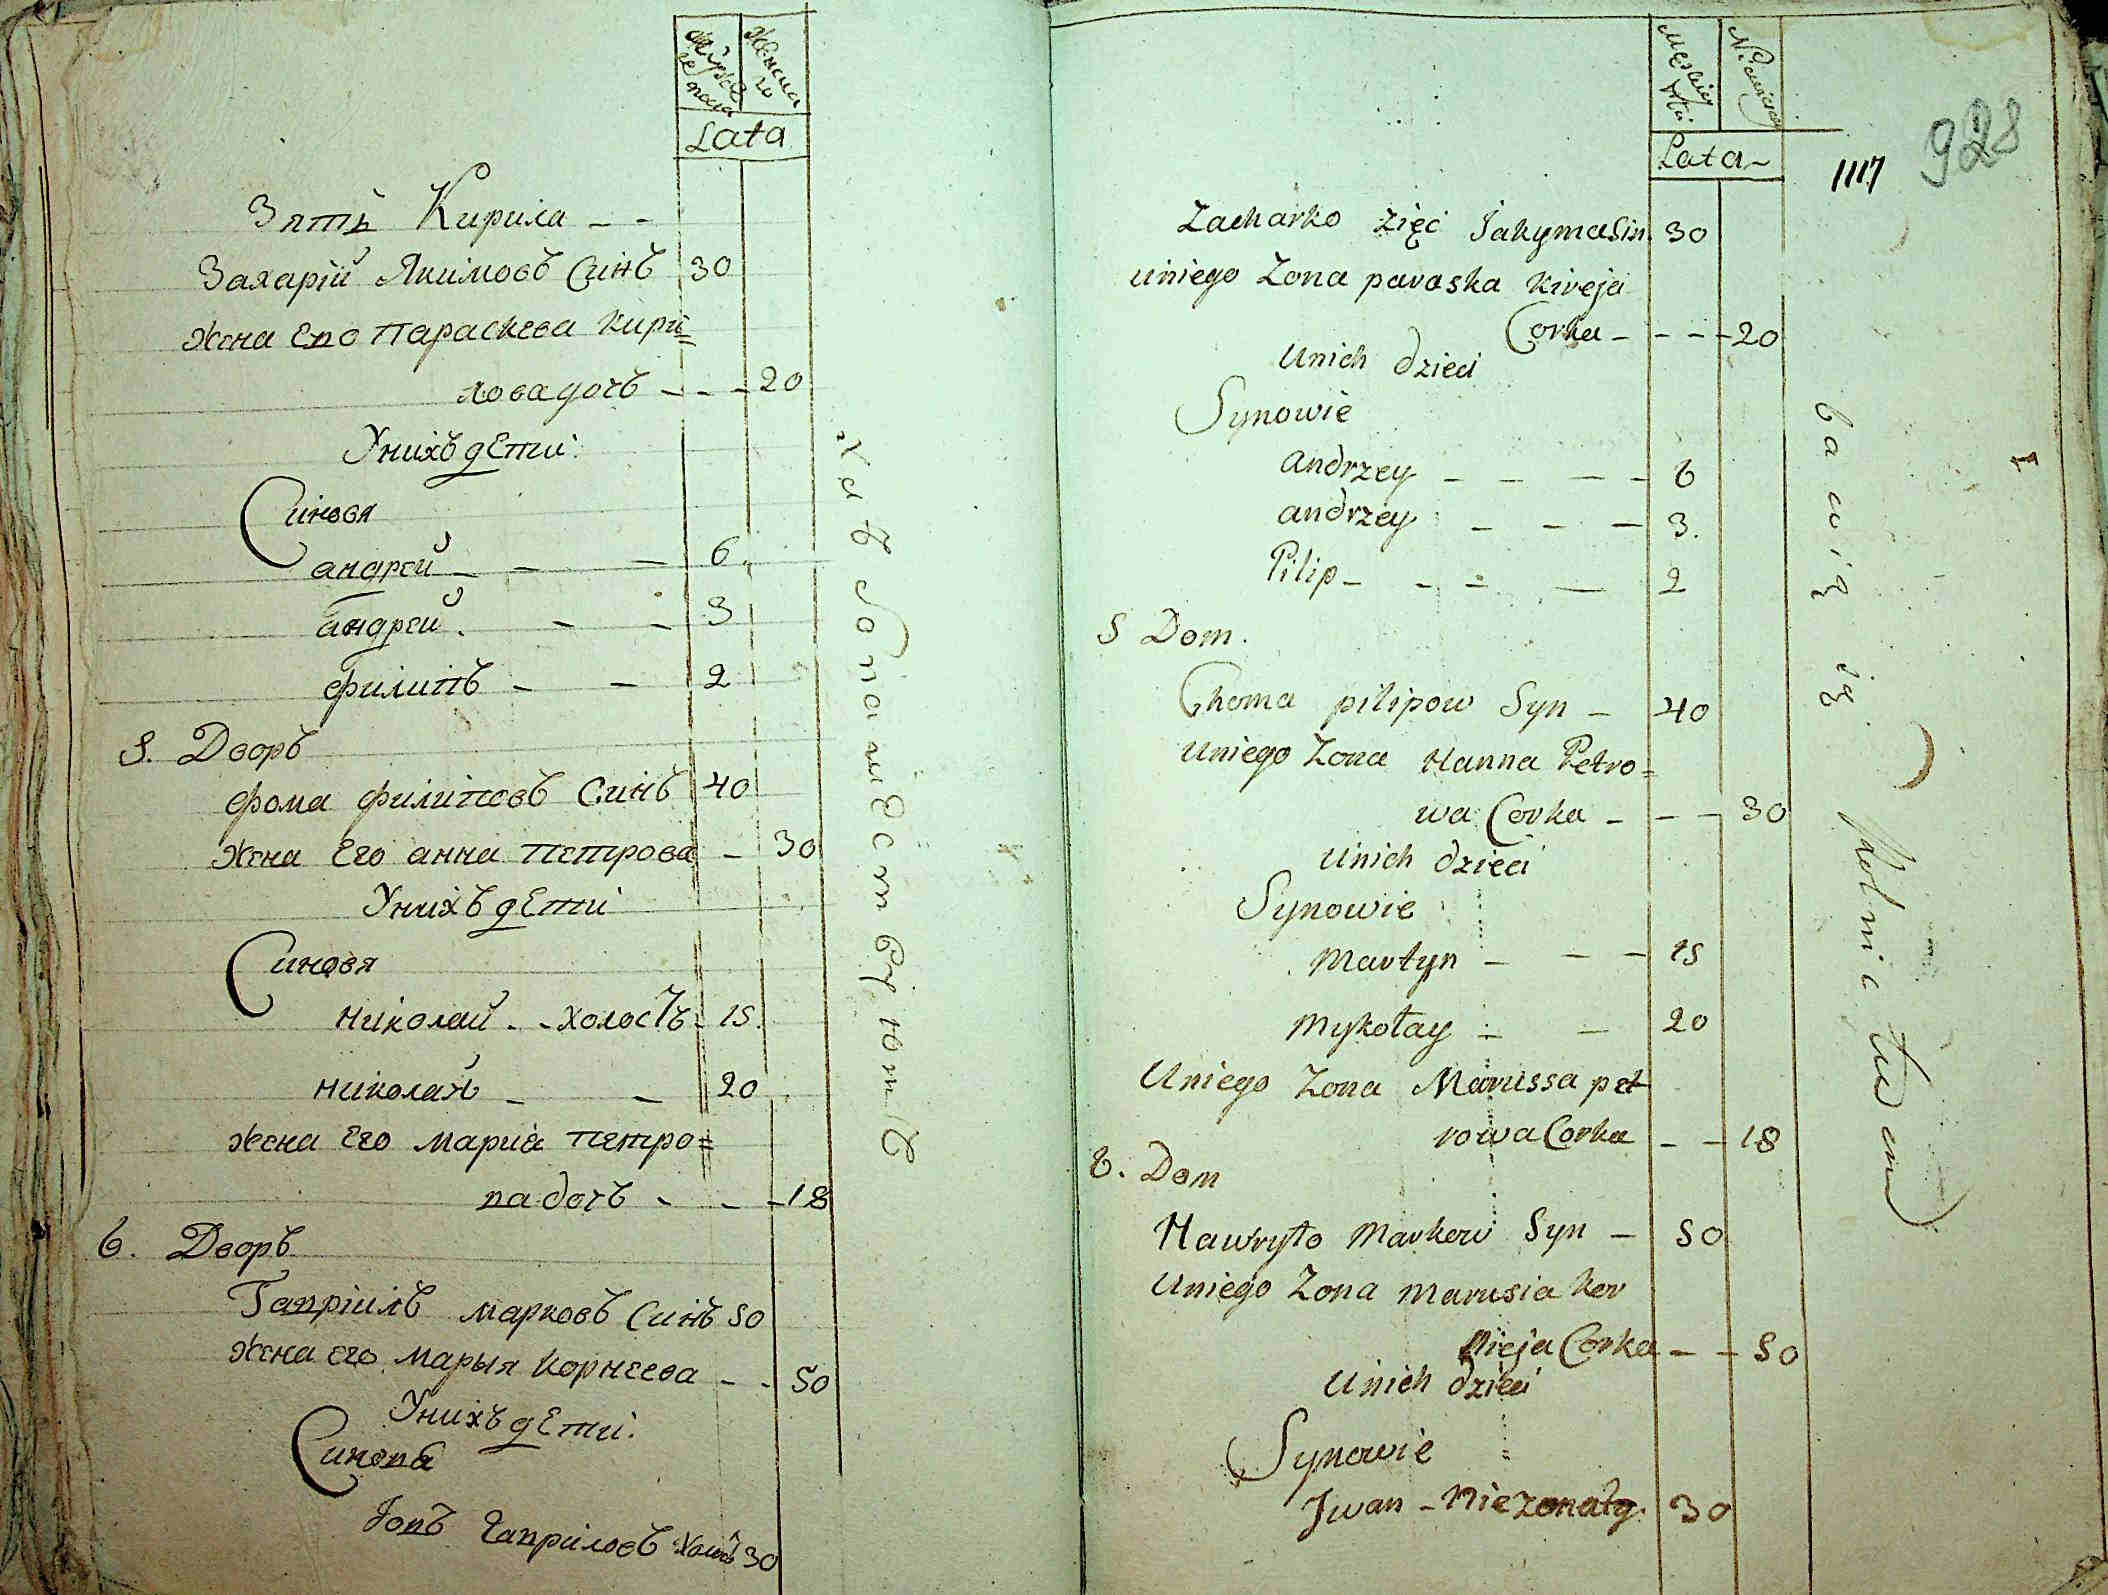 Lata
Зять Кирила - -
Захарій Якимовъ Синъ 30
жена Его Параскева Кири=
лова дочъ - - - 20
У нихъ дети:
Синовя
андрей - - - 6
андрей. - - 3
филипъ - - 2
5. Дворъ
фома филиповъ Синъ 40
жена Его анна петрова - 30
У нихъ дети
Синовя
николай - - холостъ - 15
николай - - 20
жена Его мария петро=
ва дочъ - - - 18
6. Дворъ
Гавріилъ марковъ Синъ 50
жена его марья корнеева - - 50
У нихъ дети:
Синовя
Гаврiловъ 30
Lata
1117
928
Zacharko zięć Jakyma Sin 30
uniego Zona paraska kireja
Corka - - - - 20
Unich dzieci
Synowie
andrzey - - - - 6
andrzey - - - 3.
Pilip - - - - 2
5 Dom.
Choma pilipow Syn - 40
Uniego Zona Hanna Petro=
wa Corka - - - 30
Unich dzieci
Synowie
Martyn - - - 15
Mykołay - - 20
Uniego Zona Marussa pet
rowa Corka - - 18
6. Dom
Hawryło Markow Syn - 50
Uniego Zona Marusia kor
nieja Corka - - 50
Unich dzieci
Synowie
Jwan - Niezonaty. 30
bawią ią